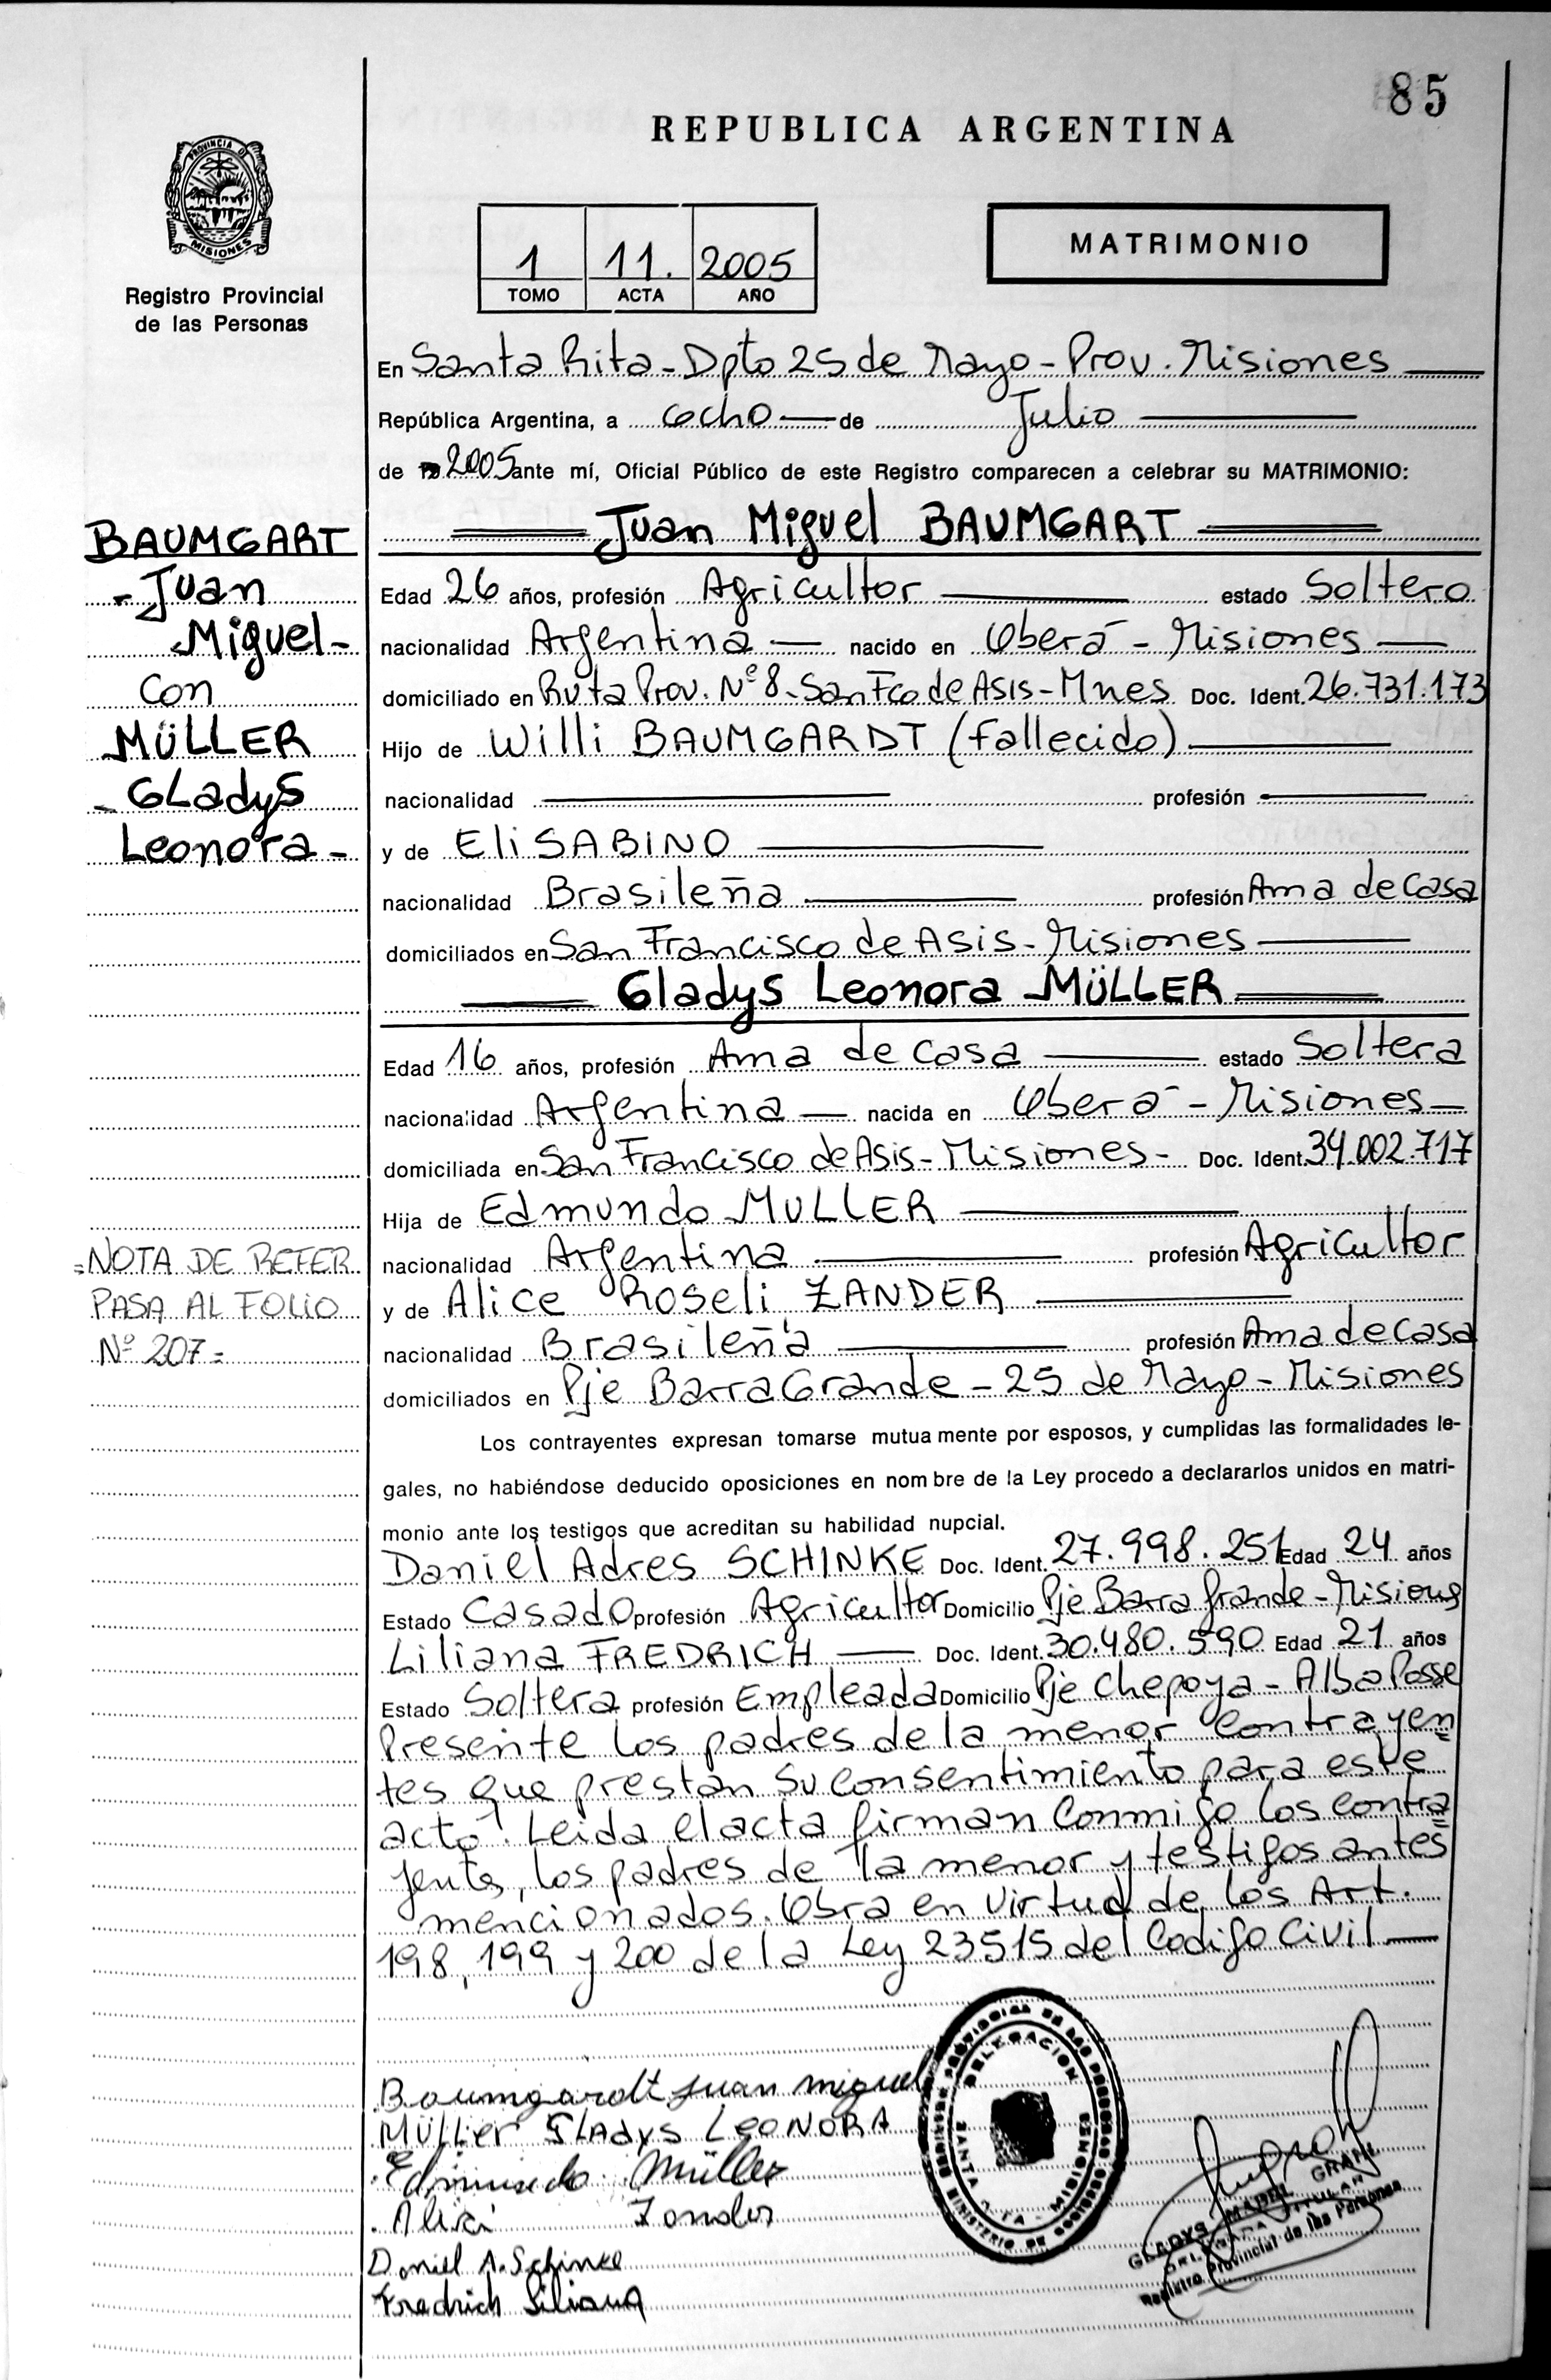 85
REPUBLICA ARGENTINA
PROVINCIA D
MISIONES
Registro Provincial
de las Personas
1 11. 2005
TOMO ACTA AÑO
MATRIMONIO
En Santa Rita - Dpto 25 de Mayo - Prov. Misiones
República Argentina, a ocho de Julio
de 2005 ante mí, Oficial Público de este Registro comparecen a celebrar su MATRIMONIO:
Juan Miguel BAUMGART
BAUMGART
- Juan
Miguel -
Con
MÜLLER
- GLadyS
Leonora -
Edad 26 años, profesión Agricultor estado Soltero
nacionalidad Argentina nacido en Oberá - Misiones
domiciliado en Ruta Prov. Nº 8 - San Fco de Asis - Mnes Doc. Ident. 26.731.173
Hijo de Willi BAUMGARDT (fallecido)
nacionalidad profesión
y de Eli SABINO
nacionalidad Brasileña profesión Ama de Casa
domiciliados en San Francisco de Asis - Misiones
Gladys Leonora MÜLLER
Edad 16 años, profesión Ama de Casa estado Soltera
nacionalidad Argentina nacida en Oberá - Misiones
domiciliada en San Francisco de Asis - Misiones - Doc. Ident. 34.002.717
Hija de Edmundo MULLER
nacionalidad Argentina profesión Agricultor
y de Alice Roseli ZANDER
nacionalidad Brasileña profesión Ama de Casa
domiciliados en Pje Barra Grande - 25 de Mayo - Misiones
=NOTA DE REFER
PASA AL FOLIO
Nº 207=
Los contrayentes expresan tomarse mutuamente por esposos, y cumplidas las formalidades le-
gales, no habiéndose deducido oposiciones en nombre de la Ley procedo a declararlos unidos en matri-
monio ante los testigos que acreditan su habilidad nupcial.
Daniel Adres SCHINKE Doc. Ident. 27.998.251 Edad 24 años
Estado Casado profesión Agricultor Domicilio Pje Barra Grande - Misiones
Liliana FREDRICH Doc. Ident. 30.480.590 Edad 21 años
Estado Soltera profesión Empleada Domicilio Pje Chepoya - Alba Posse
Presente los padres de la menor Contrayen=
tes que prestan su Consentimiento para este
acto. Leida el acta firman Conmigo los Contra=
yentes, los padres de la menor y testigos antes
mencionados. Obra en Virtud de los Art.
198, 199 y 200 de la Ley 23515 del Codigo Civil
Baumgardt Juan miguel
MÜLLER GLAdyS LEONORA
Edmundo Müller
Alici Zander
Daniel A. Schinke
Fredrich Liliana
DELEGACION
SANTA RITA - MISIONES
GLADYS MABEL GRAHL
DELEGADA TITULAR
Registro Provincial de las Personas